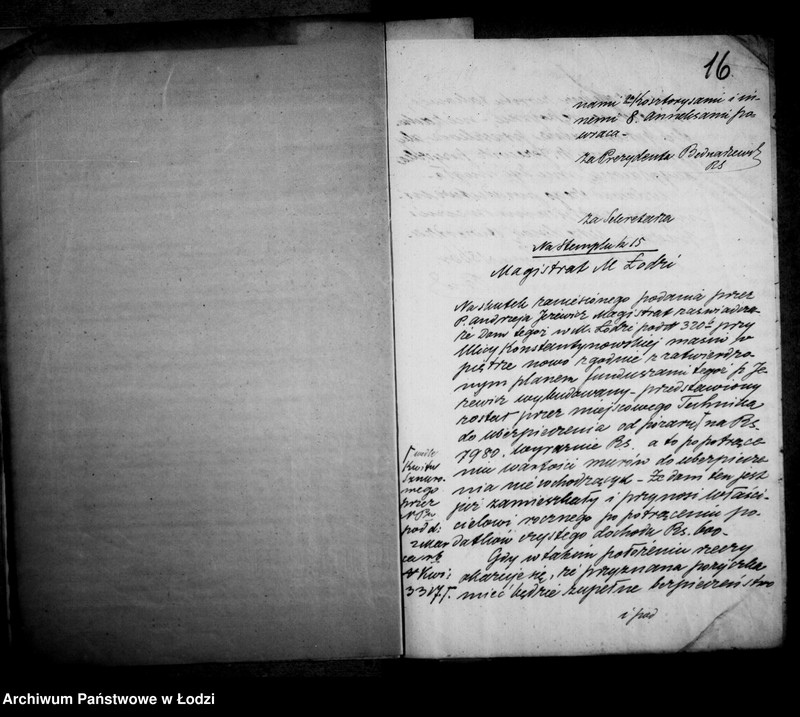 16
nami i Kosztorysami i in-
nemi 8. anneksami po
wraca -
Za Prezydenta Bednarzewski
RS
za Sekretarza
Na Stemplu k 15
Magistrat M Łodzi
Na skutek zaniesionego podania przez
P. Andrzeja Jezewicz Magistrat zaświadcza
że Dom tegoż w M. Łodzi pod N 320 przy
Ulicy Konstantynowskiej masiw o
piętrze nowo zgodnie z zatwierdzo-
nym planem funduszami tegoż p. Je-
zewicz wybudowany - przedstawiony
został przez miejscowego Technika
do ubezpieczenia od pożaru na Rs.
7980. wyraźnie Rs. a to po potrące-
niu wartości murów do ubezpiecze-
nia nie wchodzących - Że dom ten jest
już zamieszkały i przynosi właści-
cielowi rocznego po potrąceniu po-
datków czystego dochodu Rs. 600 -
Gdy w takim położeniu rzeczy
okazuje się, że przyznana pożyczka
mieć będzie zupełne bezpieczeństwo
i pod
Γ wedle
Kwitu
Sznuro-
wego
przez
pod d:
2 Mar
ca rb
N Kwi:
3317.
Archiwum Państwowe w Łodzi